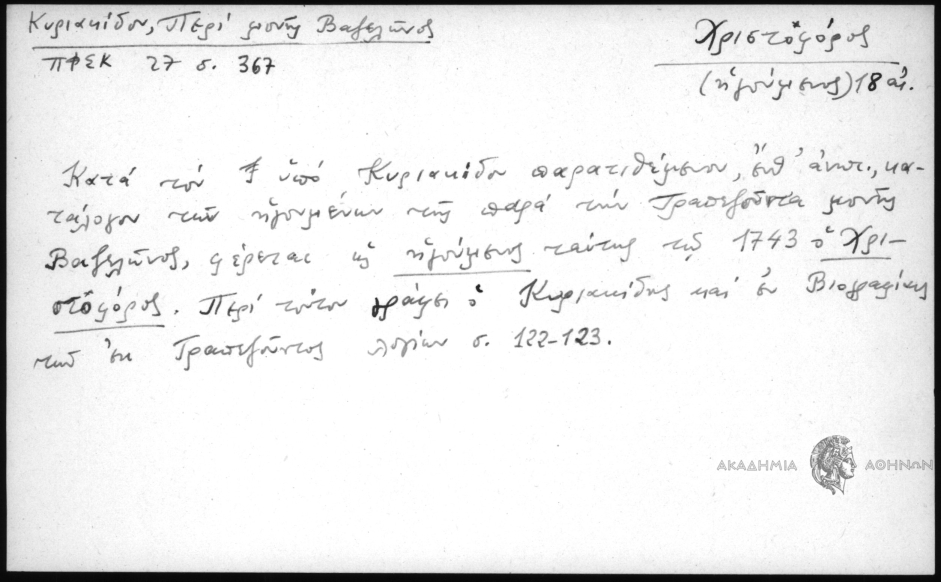 Κυριακίδου, Περί μονής Βαζελῶνος
ΠΦΣΚ 27 σ. 367
Χριστόφορος
(ἡγούμενος) 18 αἰ.
Κατά τόν ὑπό Κυριακίδου παρατιθέμενον, ἔνθ' ἀνωτ., κα-
τάλογον τῶν ἡγουμένων τῆς παρά τήν Τραπεζοῦντα μονῆς
Βαζελῶνος, φέρεται ὡς ἡγούμενος ταύτης τῷ 1743 ὁ Χρι-
στόφόρος. Περί τούτου γράφει ὁ Κυριακίδης καί ἐν Βιογραφίαις
τῶν ἐκ Τραπεζοῦντος λογίων σ. 122-123.
ΑΚΑΔΗΜΙΑ ΑΘΗΝΩΝ